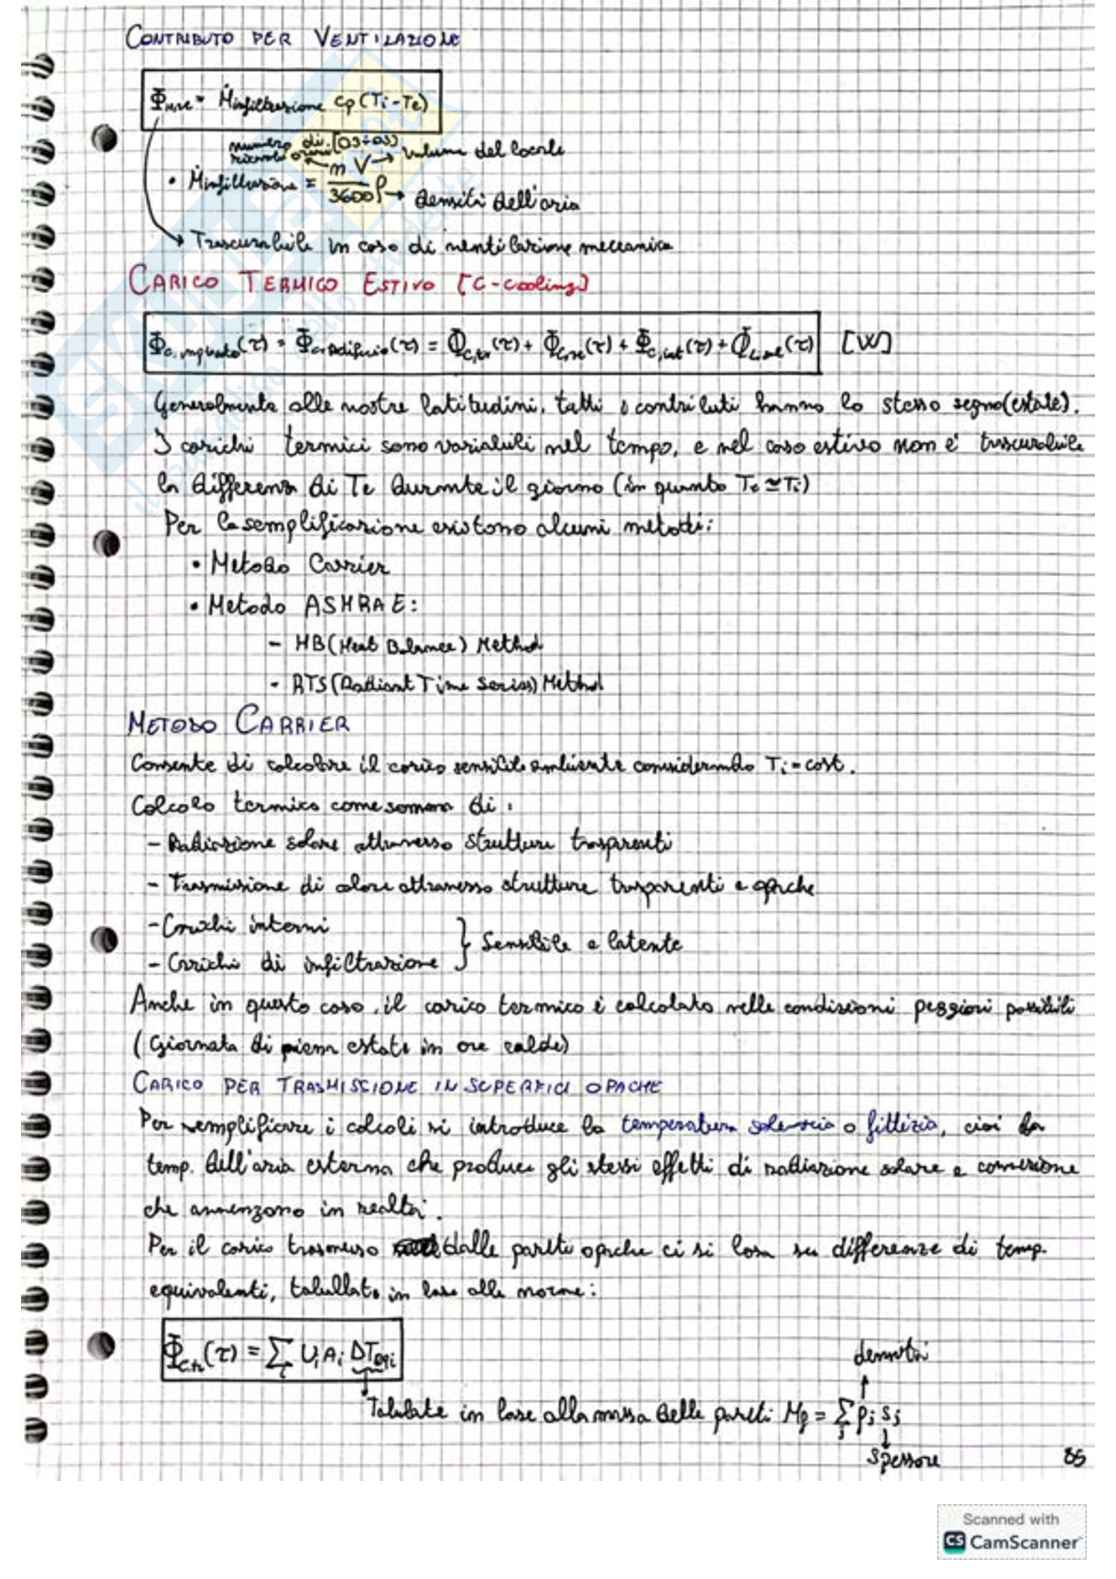 CONTRIBUTO PER VENTILAZIONE
Φ = Ṁinfiltrazione cp (Ti-Te)
numero di [0.3÷0.5]
ricambi orari volume del locale
• Ṁinfiltrazione = n V / 3600 ρ → densità dell'aria
→ Trascurabile in caso di ventilazione meccanica
CARICO TERMICO ESTIVO [C-cooling]
Φc,impianto(τ) = Φc,edificio(τ) = Φc,tr(τ) + Φc,ve(τ) + Φc,int(τ) + Φc,sol(τ) [W]
Generalmente alle nostre latitudini, tutti i contributi hanno lo stesso segno (estate).
I carichi termici sono variabili nel tempo, e nel caso estivo non è trascurabile
la differenza di Te durante il giorno (in quanto Te ≃ Ti)
Per la semplificazione esistono alcuni metodi:
• Metodo Carrier
• Metodo ASHRAE:
- HB (Heat Balance) Method
- RTS (Radiant Time Series) Method
METODO CARRIER
Consente di calcolare il carico sensibile ambiente considerando Ti = cost.
Calcolo termico come somma di:
- Radiazione solare attraverso strutture trasparenti
- Trasmissione di calore attraverso strutture trasparenti e opache
- Carichi interni
} Sensibile e latente
- Carichi di infiltrazione
Anche in questo caso, il carico termico è calcolato nelle condizioni peggiori possibili
(Giornata di piena estate in ore calde)
CARICO PER TRASMISSIONE IN SUPERFICI OPACHE
Per semplificare i calcoli si introduce la temperatura sole-aria o fittizia, cioè la
temp. dell'aria esterna che produce gli stessi effetti di radiazione solare e convezione
che avvengono in realtà.
Per il carico trasmesso dalle pareti opache ci si basa su differenze di temp.
equivalenti, tabullate in base alle norme:
Φc,tr(τ) = Σi Ui Ai ΔTeqi
densità
Tabulate in base alla massa delle pareti Mf = Σj ρj sj
spessore
85
Scanned with
CS CamScanner